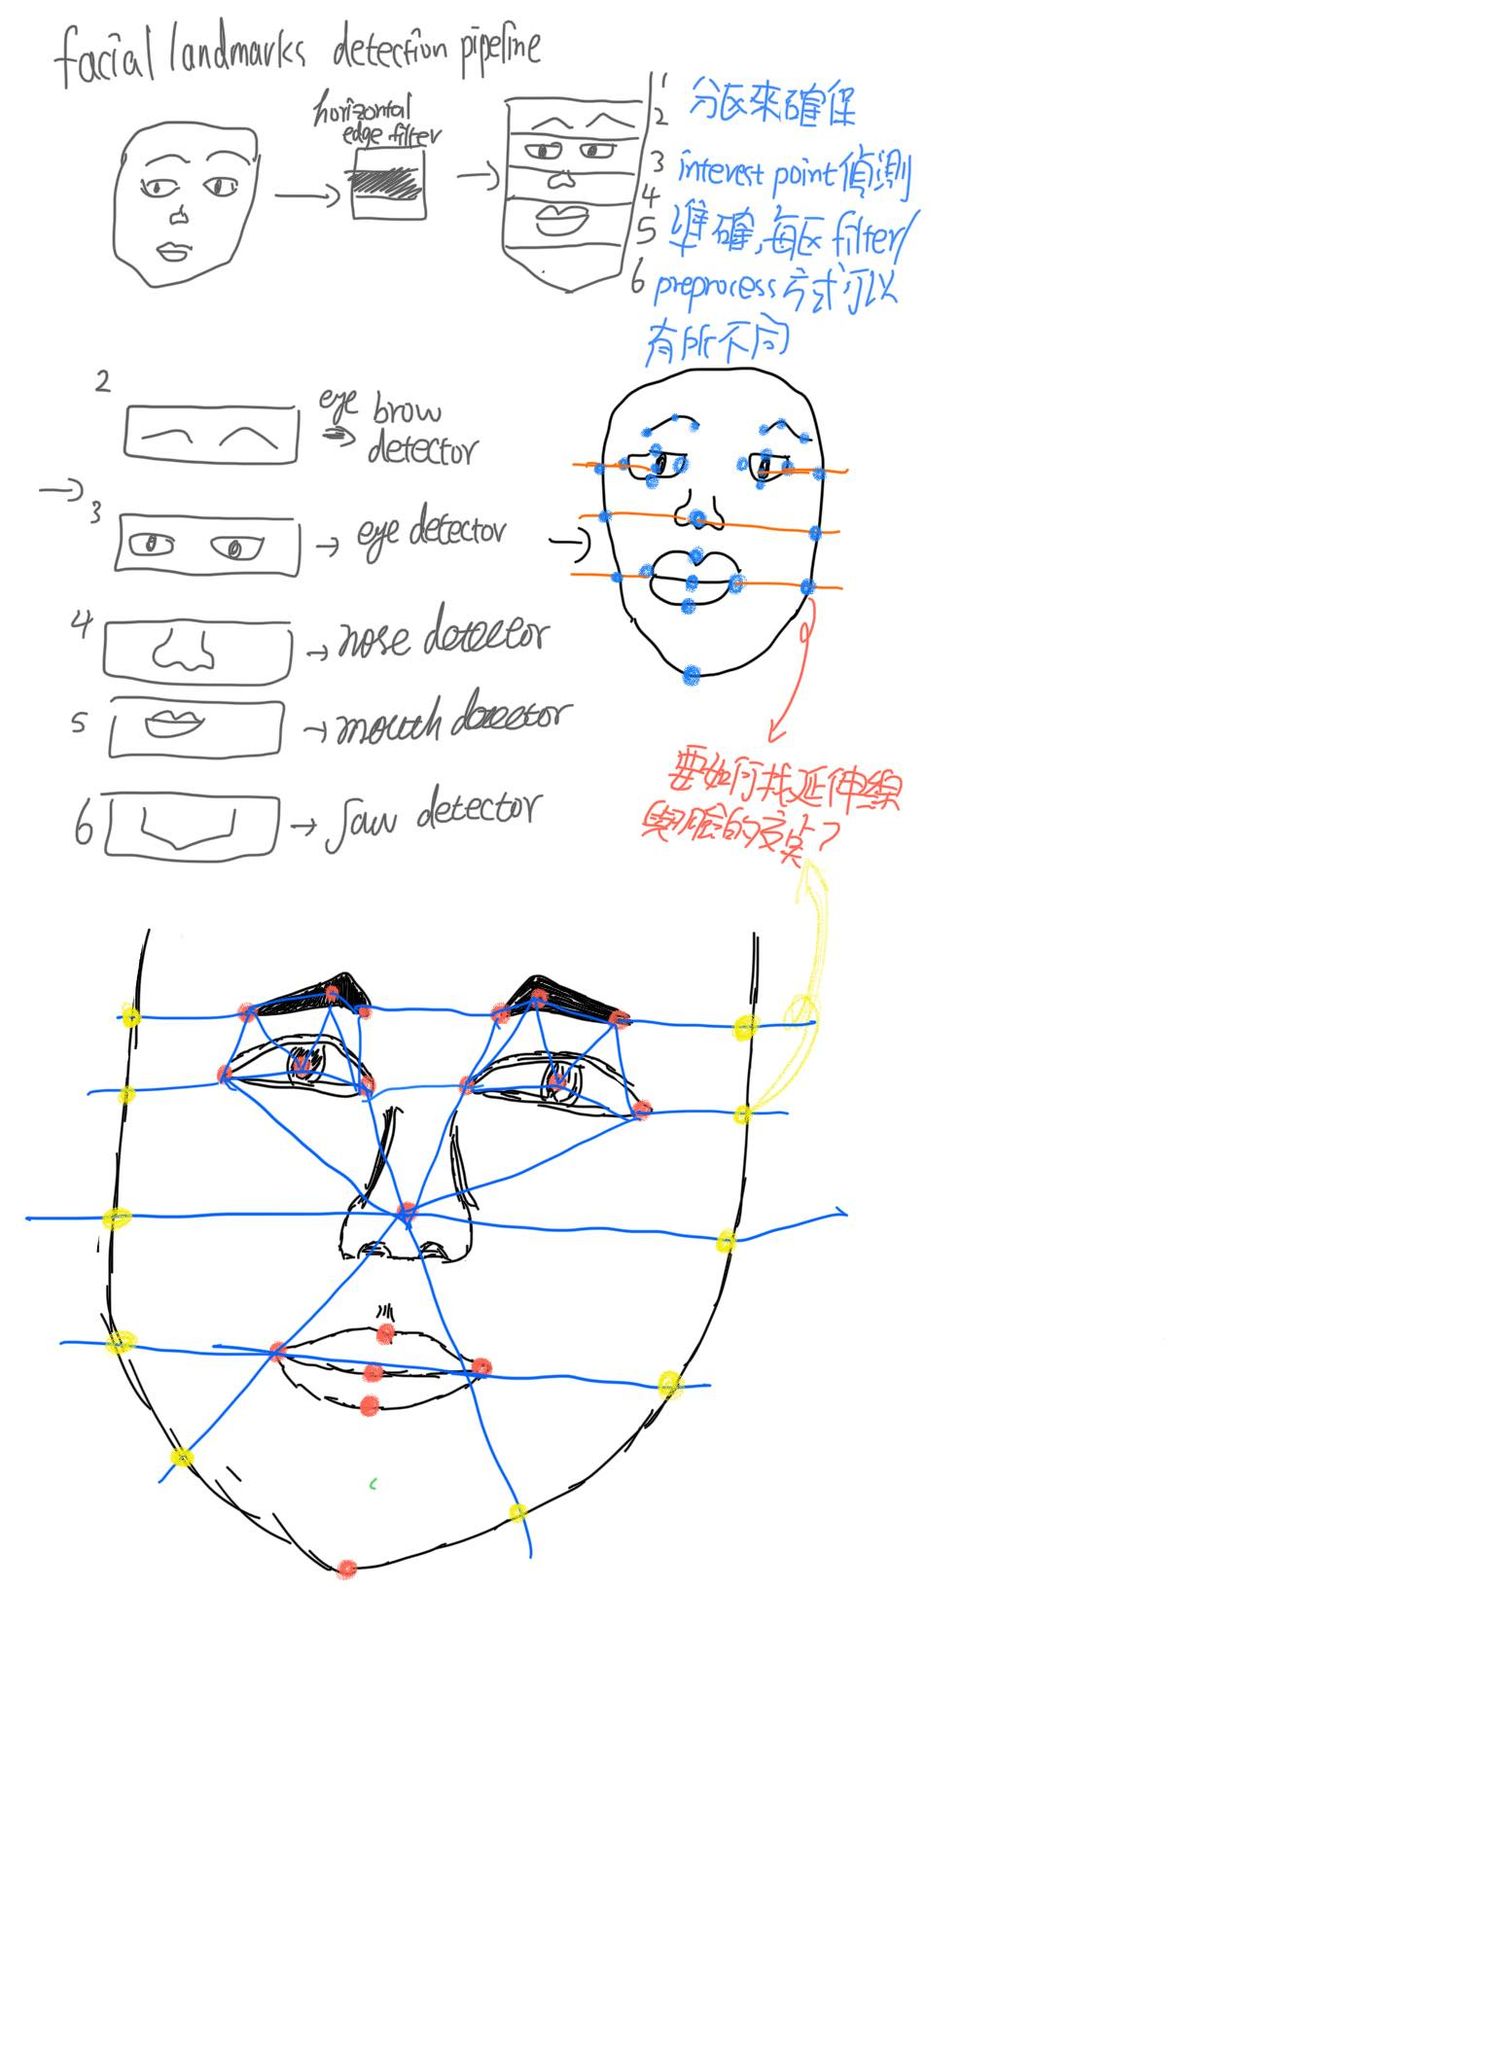 facial landmarks detection pipeline
horizontal
edge filter
1
2
3
4
5
6
分区來確保
interest point偵測
準確,每区filter/
preprocess方式可以
有所不同
2
eye brow
detector
3
eye detector
4
nose detector
5
mouth detector
6
Jaw detector
要如何找延伸線
與臉的交點?